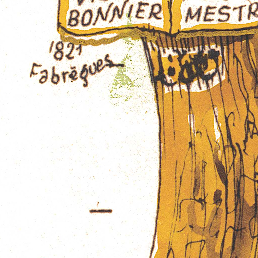 BONNIER MESTR
1821
Fabrègues